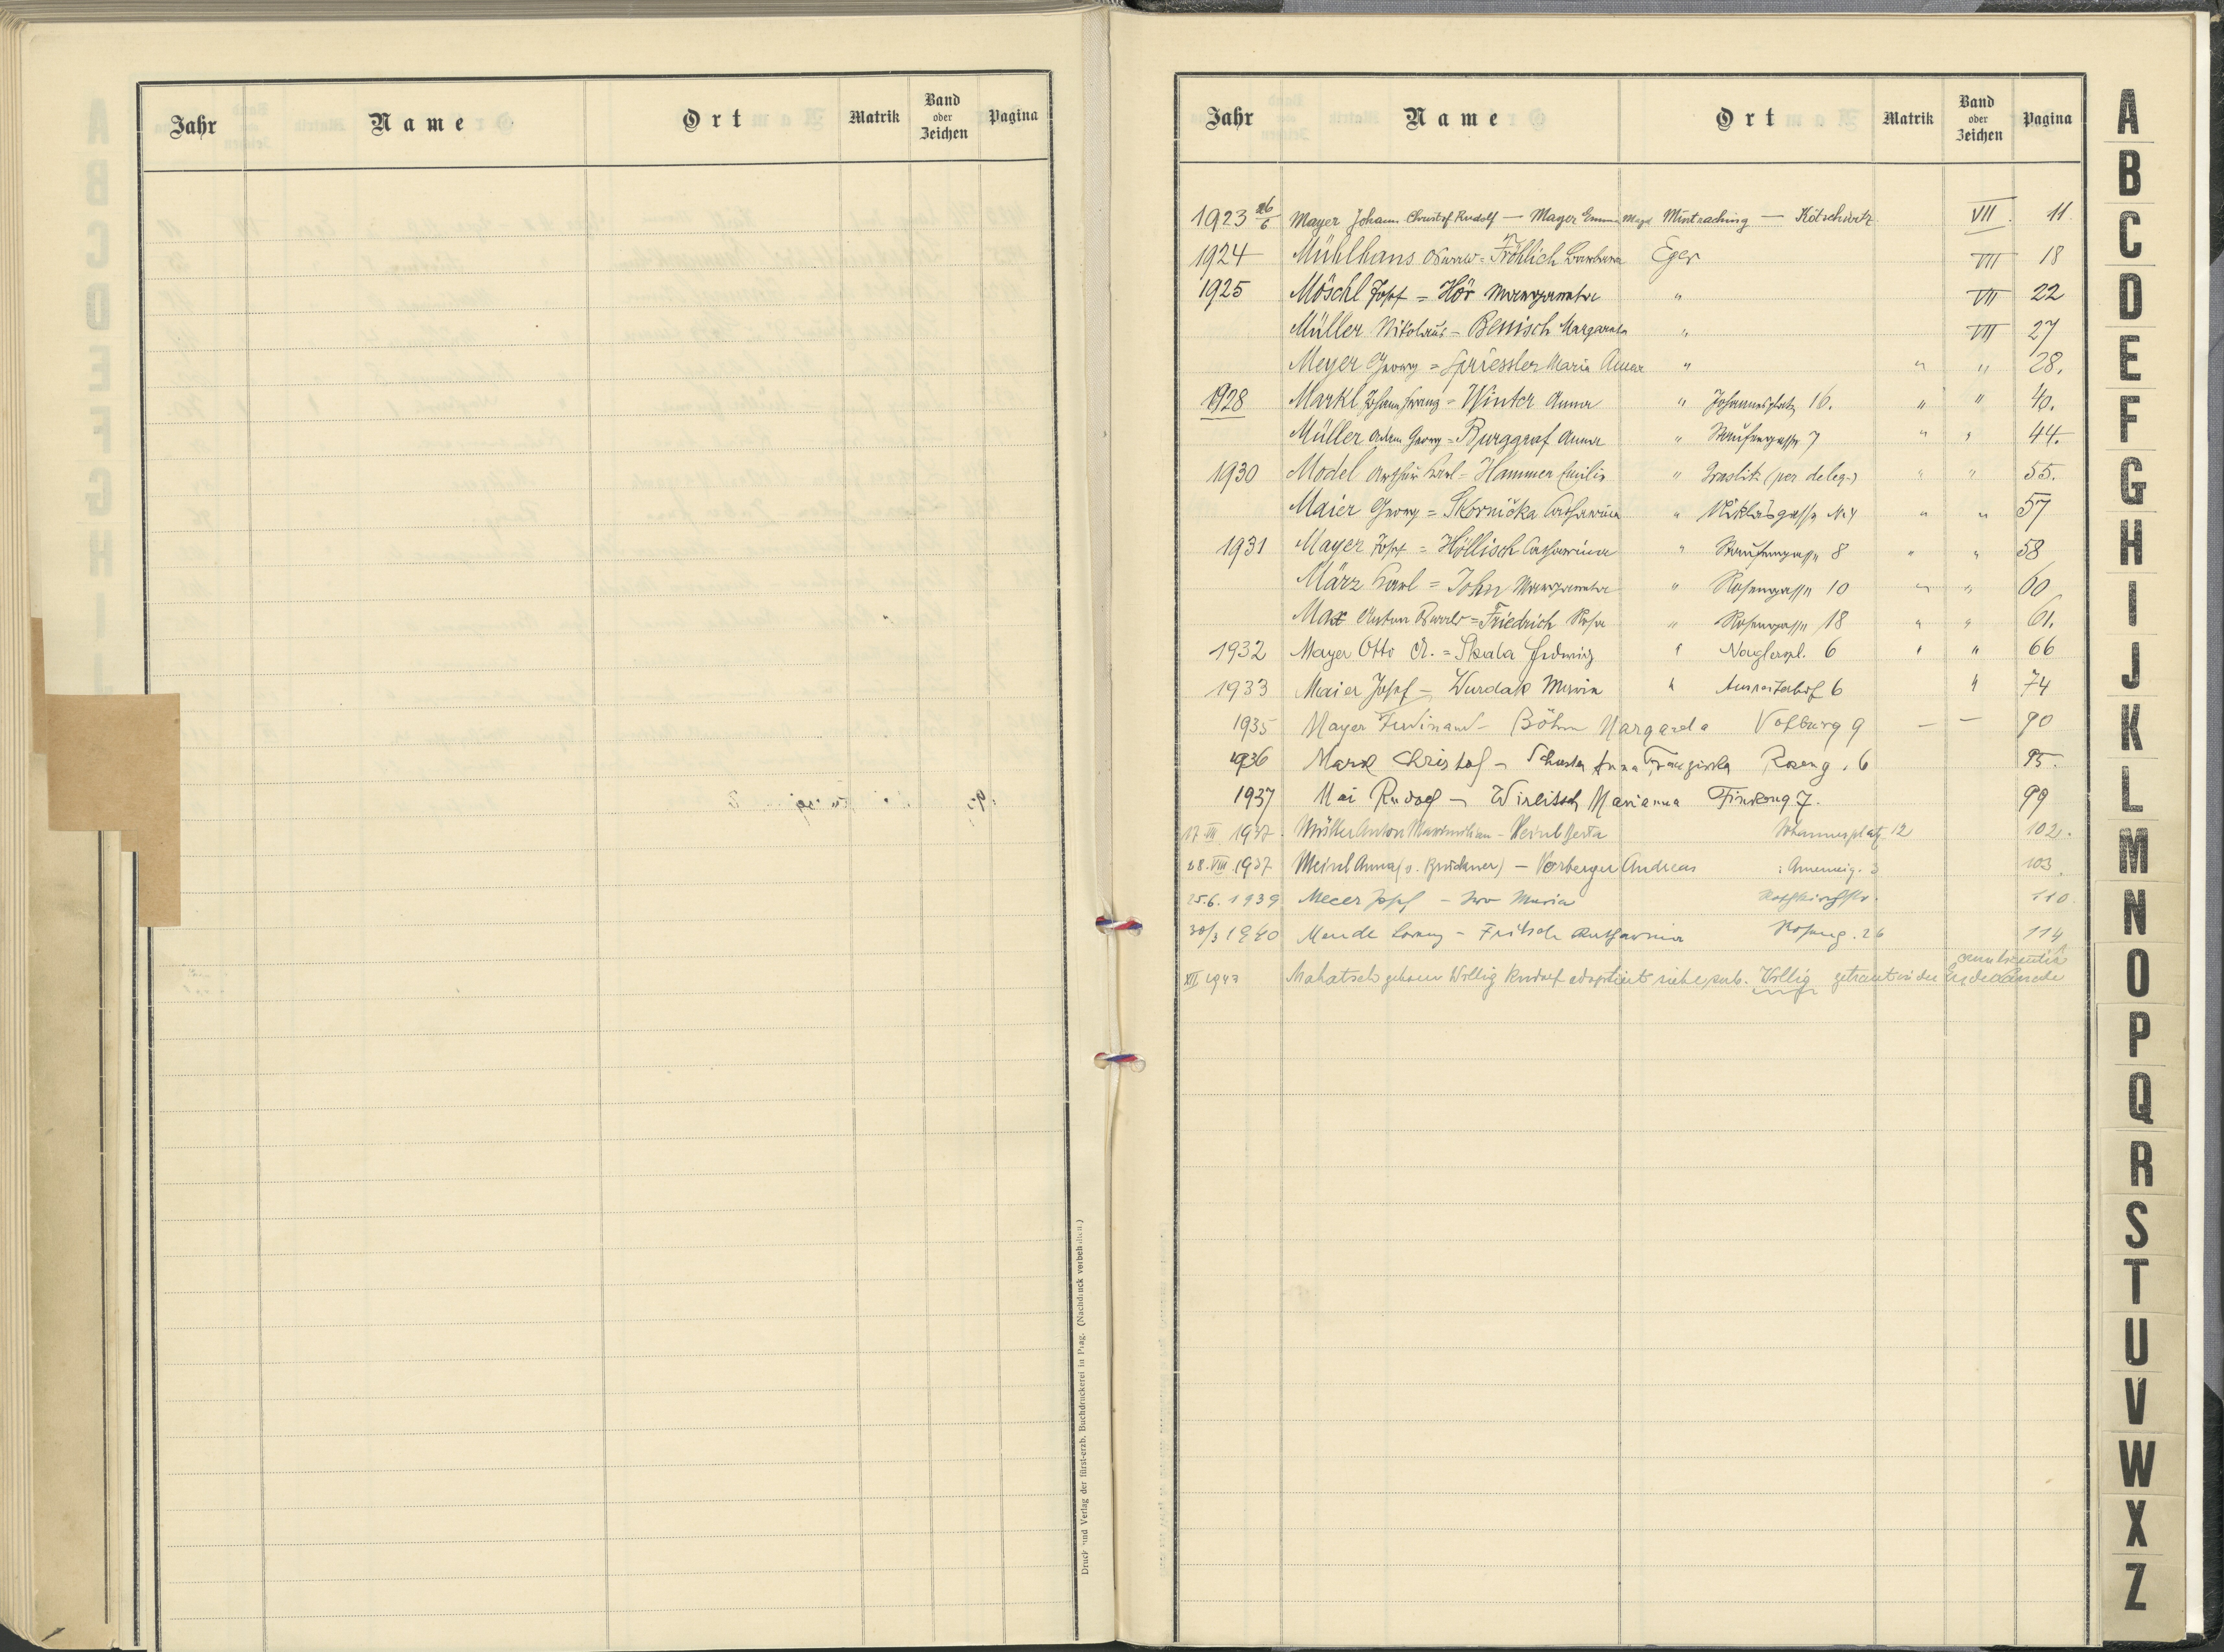 Jahr Name Ort Matrik Band oder Zeichen Pagina
Druck und Verlag der fürst-erzb. Buchdruckerei in Prag. (Nachdruck vorbehalten.)
Jahr Name Ort Matrik Band oder Zeichen Pagina
1923 26/6 Mayer Johann Christof Rudolf — Mayer Emma Magd Mintraching — Kötschwitz VII. 11
1924 Mühlhans Oswald = Fröhlich Barbara Eger VII 18
1925 Möschl Josef = Hör Margareta " VII 22
Müller Nikolaus - Benisch Margareta " VII 27
Meyer Georg = Spriessler Maria Anna " " " 28.
1928 Markl Johann Franz = Winter Anna " Johannesplatz 16. " " 40.
Müller Adam Georg = Burggraf Anna " Staufengasse 7 " " 44.
1930 Model Arthur Karl = Hammer Emilie " Graslitz (per deleg.) " " 55.
Maier Georg = Skornička Catharina " Niklasgasse N. 4 " " 57
1931 Mayer Josef = Höllisch Catharina " Staufengasse 8 " " 58
März Karl = John Margareta " Rosengasse 10 " " 60
Max Anton Oswald = Friedrich Rosa " Rosengasse 18 " " 61.
1932 Mayer Otto A. = Skala Hedwig " Naglerpl. 6 " " 66
1933 Maier Josef = Wurdak Maria " 6 " 74
1935 Mayer Ferdinand - Böhm Margareta Vorburg 9 — — 90
1936 Markl Christof - Schuster Anna Franziska Roseng. 6 95.
1937 Mai Rudolf - Wirlitsch Marianna 7. 99
17. VII. 1937. Müller Anton Maximilian - Berta Johannesplatz 12 102.
28. VIII 1937 Meinl Anna (v. Bruckner) — Vorberger Andreas 3 103
25.6. 1939 Josef - Maria 110.
30/3 1940 Mende Lorenz - Fritsch Katharina Roseng. 26 114
XII 1943 Mahatsch Willig Rudolf adoptiert siehe sub. Willig getraut in der